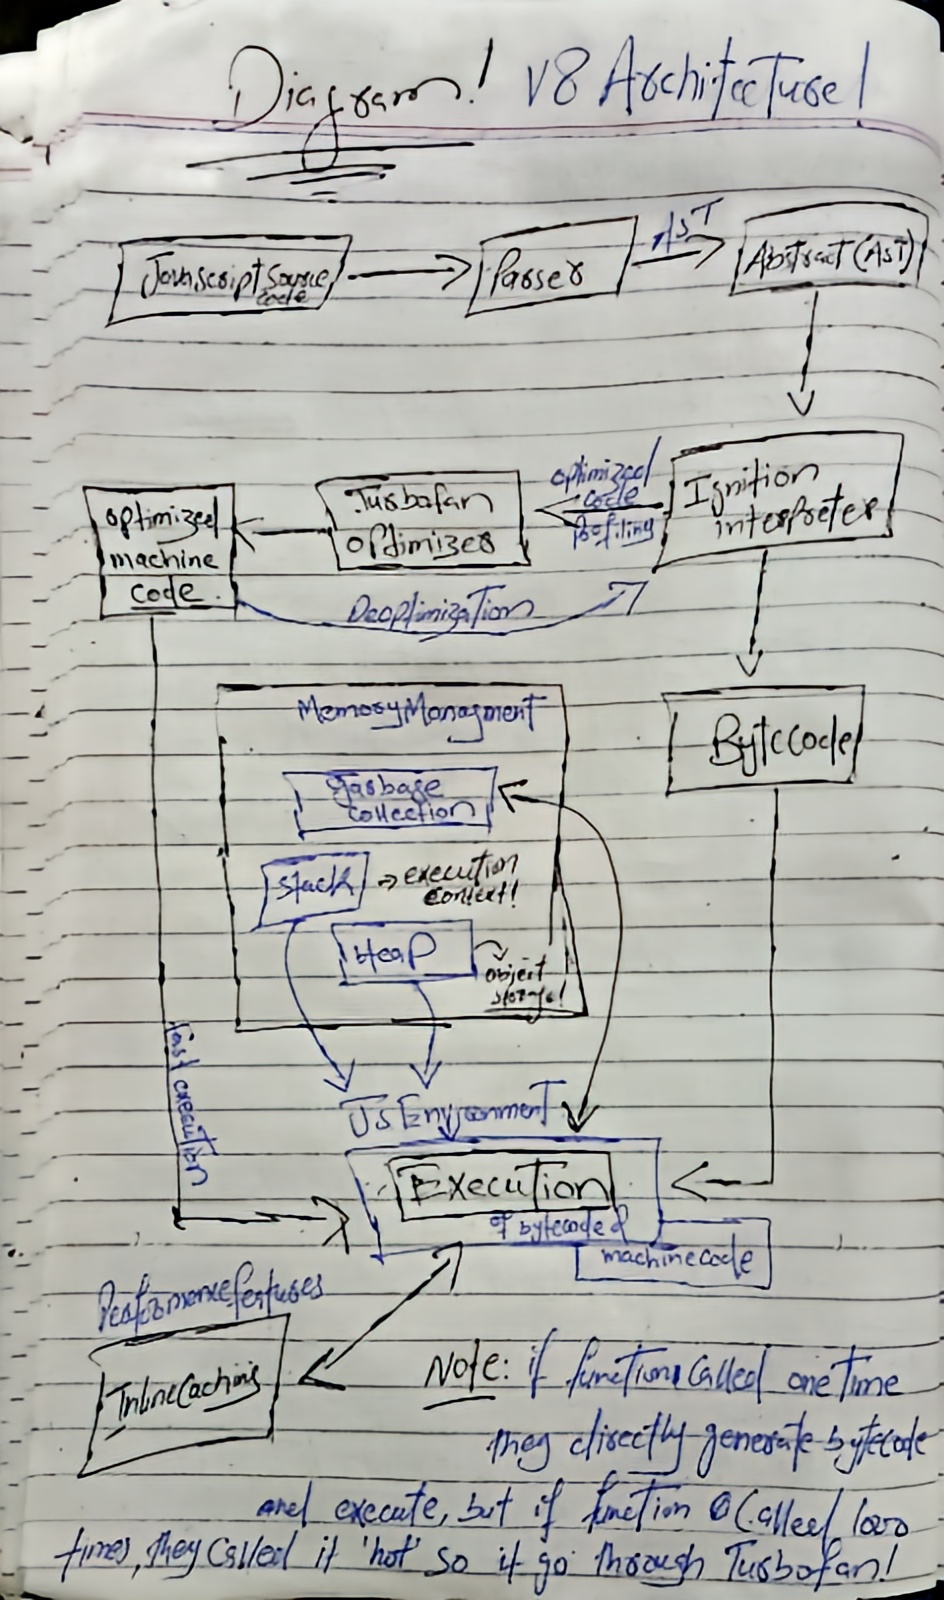 Diagram! V8 Architecture!
Javascript source
code
Parser
AST
Abstract (AST)
optimized
machine
code
Turbofan
optimizer
optimized
code
Profiling
Ignition
interpreter
Deoptimization
Memory Managment
Garbage
collection
Stack → execution
context!
Heap
object
storage!
Bytecode
fast execution
JS Environment
Execution
of bytecode &
machinecode
Performence features
Inline Caching
Note: if function called one time
they directly generate bytecode
and execute, but if function called 1000
times, they called it 'hot' so it go through Turbofan!